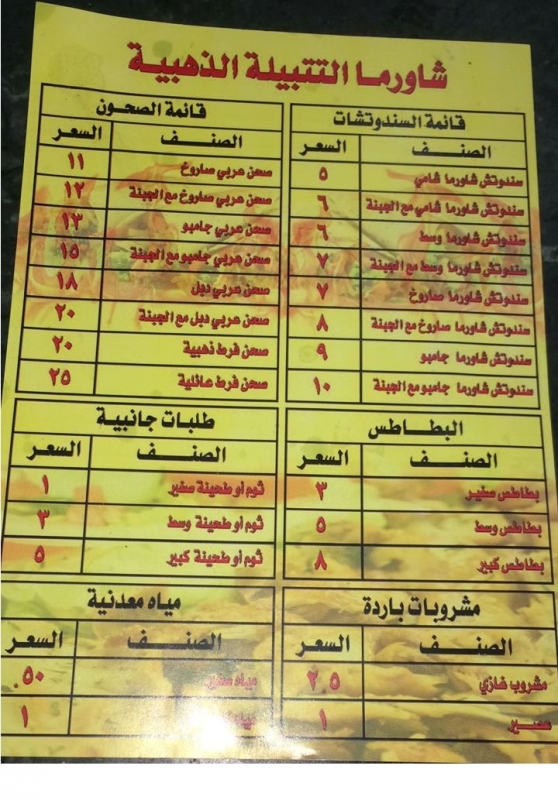 شاورما التتبيلة الذهبية
قائمة السندوتشات
الصنف السعر
سندوتش شاورما شامي ٥
سندوتش شاورما شامي مع الجبنة ٦
سندوتش شاورما وسط ٦
سندوتش شاورما وسط مع الجبنة ٧
سندوتش شاورما صاروخ ٧
سندوتش شاورما صاروخ مع الجبنة ٨
سندوتش شاورما جامبو ٩
سندوتش شاورما جامبو مع الجبنة ١٠
قائمة الصحون
الصنف السعر
صحن عربي صاروخ ١١
صحن عربي صاروخ مع الجبنة ١٢
صحن عربي جامبو ١٣
صحن عربي جامبو مع الجبنة ١٥
صحن عربي دبل ١٨
صحن عربي دبل مع الجبنة ٢٠
صحن فرط ذهبية ٢٠
صحن فرط عائلية ٢٥
البطاطس
الصنف السعر
بطاطس صغير ٣
بطاطس وسط ٥
بطاطس كبير ٨
طلبات جانبية
الصنف السعر
ثوم أو طحينة صغير ١
ثوم أو طحينة وسط ٣
ثوم أو طحينة كبير ٥
مشروبات باردة
الصنف السعر
مشروب غازي ٢.٥
١
مياه معدنية
الصنف السعر
مياه صغير ٥٠.
مياه ١